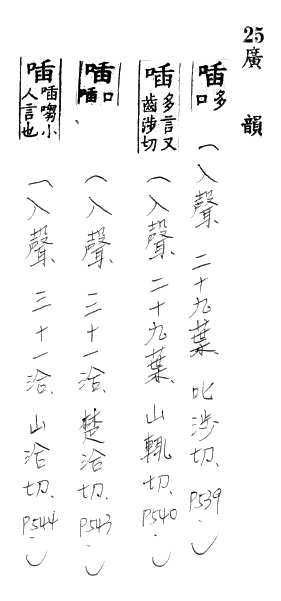 25 廣韻
喢 多口（入聲 二十九葉. 叱涉切. P539.）
喢 多言又齒涉切（入聲. 二十九葉. 山輒切. P540.）
喢 喢口（入聲. 三十一洽. 楚洽切. P543.）
喢 喢㗙小人言也（入聲 三十一洽. 山洽切. P544.）